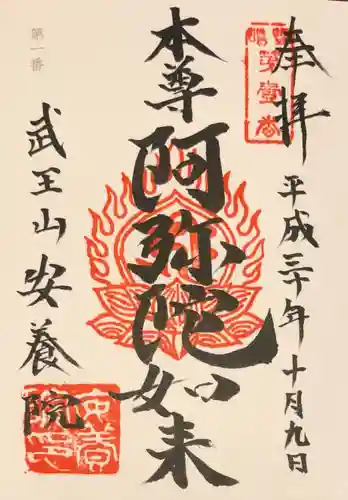 奉拝
平成三十年十月九日
第壹番
本尊
阿弥陀如来
第一番
武王山安養院